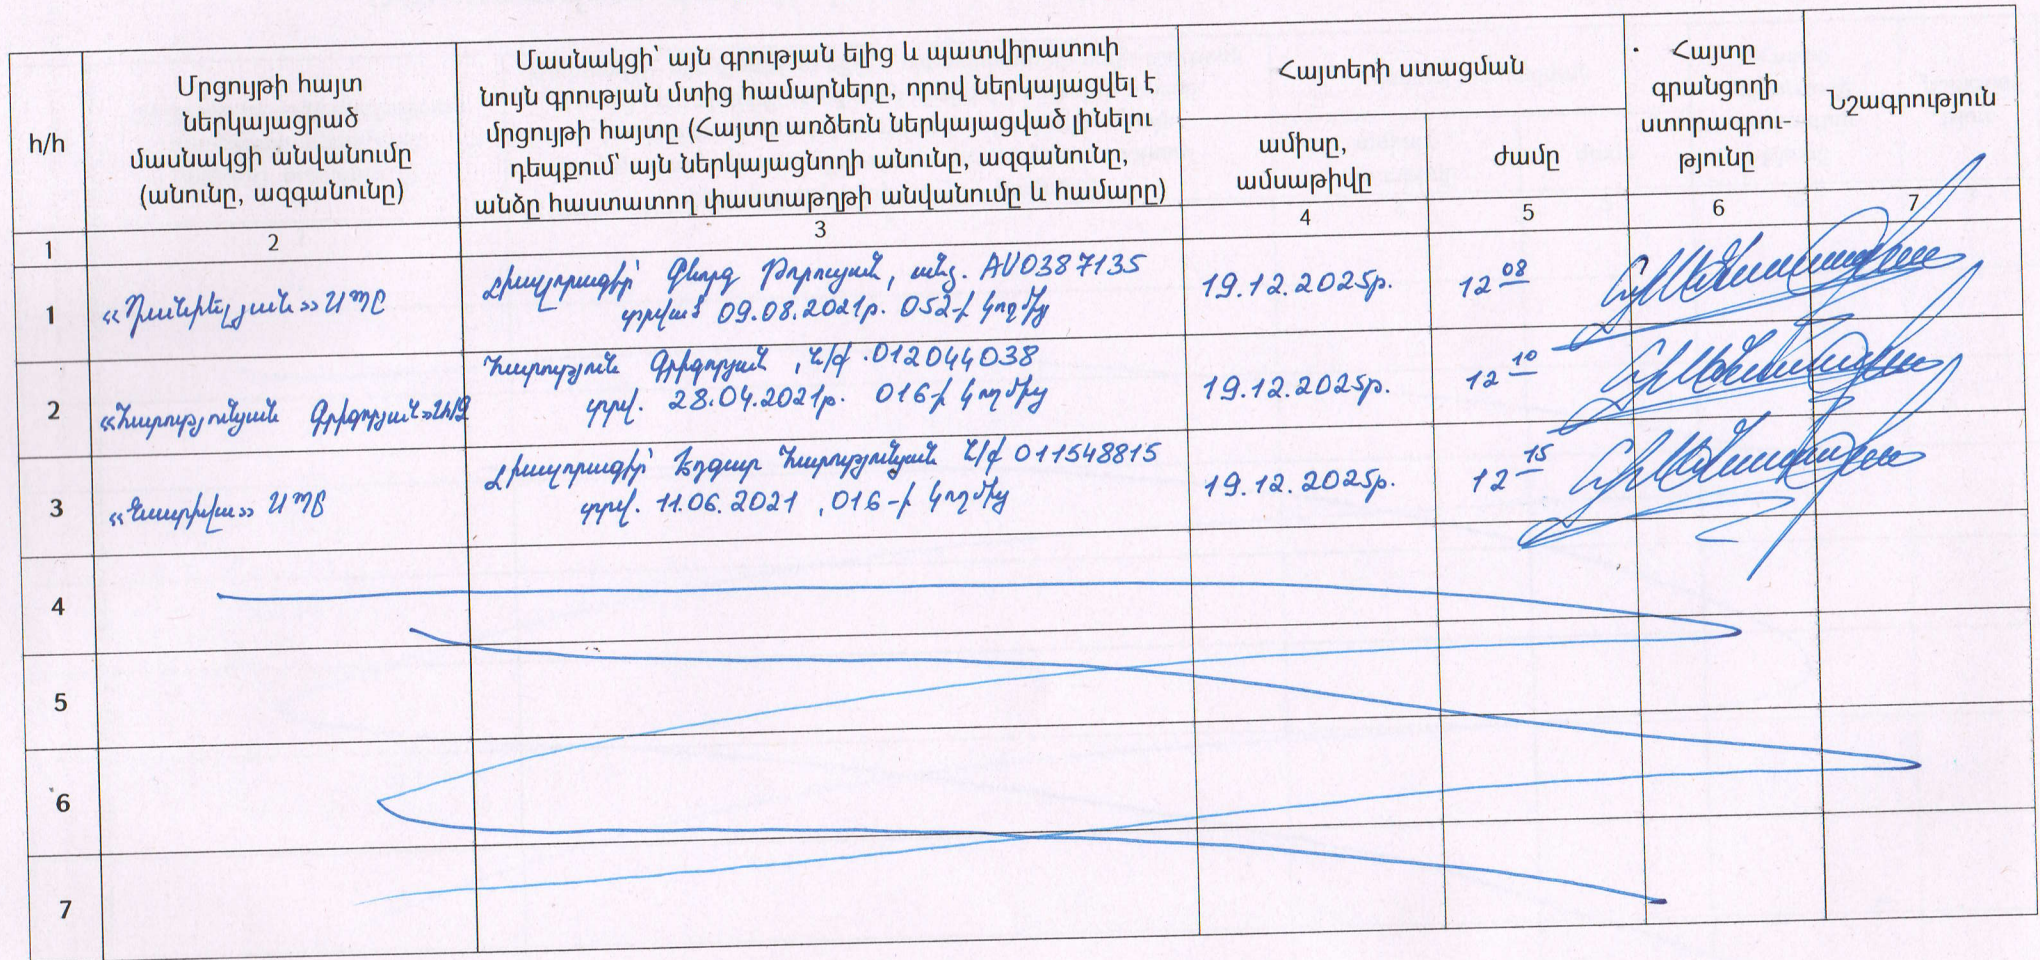 հ/հ
Մրցույթի հայտ
ներկայացրած
մասնակցի անվանումը
(անունը, ազգանունը)
Մասնակցի՝ այն գրության ելից և պատվիրատուի
նույն գրության մտից համարները, որով ներկայացվել է
մրցույթի հայտը (Հայտը առձեռն ներկայացված լինելու
դեպքում՝ այն ներկայացնողի անունը, ազգանունը,
անձը հաստատող փաստաթղթի անվանումը և համարը)
Հայտերի ստացման
ամիսը,
ամսաթիվը
ժամը
Հայտը
գրանցողի
ստորագրու-
թյունը
Նշագրություն
1 2 3 4 5 6 7
1 «Դանիելյան» ՍՊԸ
Լիազորագիր՝ Գևորգ Թորոսյան, անձ. AV0387135
տրված 09.08.2021թ. 052-ի կողմից
19.12.2025թ. 12 08
2 «Հարությունյան Գրիգորյան»
Հարություն Գրիգորյան, Ն/Ք 012044038
տրվ. 28.04.2021թ. 016-ի կողմից
19.12.2025թ. 12 10
3 ՍՊԸ
Լիազորագիր՝ Էդգար Հարությունյան Ն/Ք 011548815
տրվ. 11.06.2021, 016-ի կողմից
19.12.2025թ. 12 15
4
5
6
7